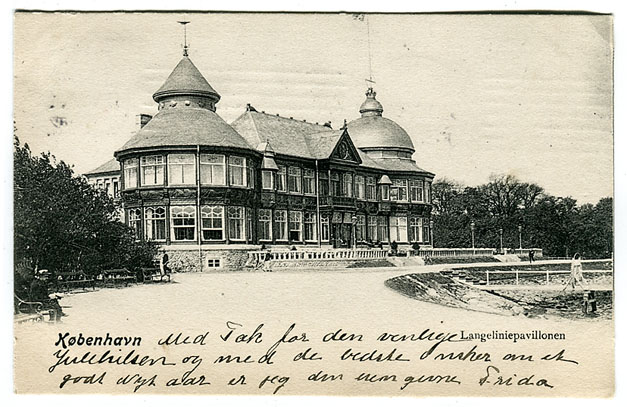 København Med Tak for den venlige Langeliniepavillonen
Julehilsen og med de bedste Ønsker om et
godt Nyt aar er jeg din hengivne Frida